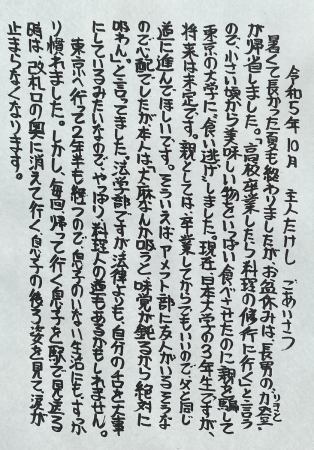 令和5年10月　主人たけし　ごあいさつ
暑くて長かった夏も終わりましたが、お盆休みは、長男の力登(りきと)
が帰省しました。「高校卒業したら料理の修行に行く」と言う
ので、小さい頃から美味しい物をいっぱい食べさせたのに、親を騙して
東京の大学に"食い逃げ"しました。現在日本大学の3年生ですが、
将来は未定です。親としては、卒業してからでもいいので父と同じ
道に進んでほしいです。そういえば、アメフト部に友人がいるそうな
ので心配でしたが、本人は「大麻なんか吸うと味覚が鈍るから絶対に
吸わん」と言ってました。法学部ですが、法律よりも、自分の舌を大事
にしているみたいなので、やっぱり料理人の道もあるかもしれません。
東京へ行って2年半も経つので、息子のいない生活にもすっか
り慣れました。しかし、毎回帰って行く息子を駅で見送る
時は、改札口の奥に消えて行く息子の後ろ姿を見て涙が
止まらなくなります。